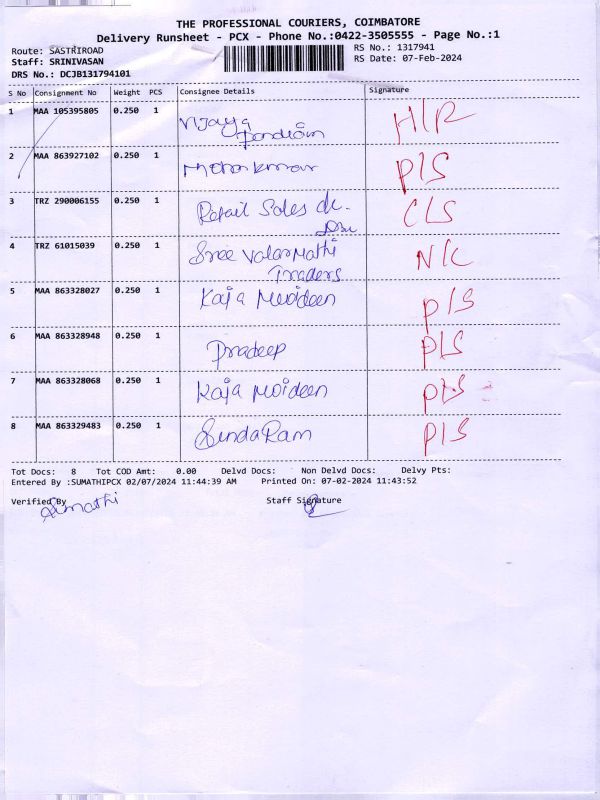 THE PROFESSIONAL COURIERS, COIMBATORE
Delivery Runsheet - PCX - Phone No.:0422-3505555 - Page No.:1
Route: SASTRIROAD
Staff: SRINIVASAN
DRS No.: DCJB131794101
RS No.: 1317941
RS Date: 07-Feb-2024
S No Consignment No Weight PCS Consignee Details Signature
1 MAA 105395805 0.250 1 Vijaya H/R
2 MAA 863927102 0.250 1 P/S
3 TRZ 290006155 0.250 1 Retail Sales C/S
4 TRZ 61015039 0.250 1 Sree Valarmathi N/C
Traders
5 MAA 863328027 0.250 1 Kaja P/S
6 MAA 863328948 0.250 1 Pradeep P/S
7 MAA 863328068 0.250 1 Kaja Moideen P/S
8 MAA 863329483 0.250 1 SundaRam P/S
Tot Docs: 8 Tot COD Amt: 0.00 Delvd Docs: Non Delvd Docs: Delvy Pts:
Entered By :SUMATHIPCX 02/07/2024 11:44:39 AM Printed On: 07-02-2024 11:43:52
Verified By Staff Signature